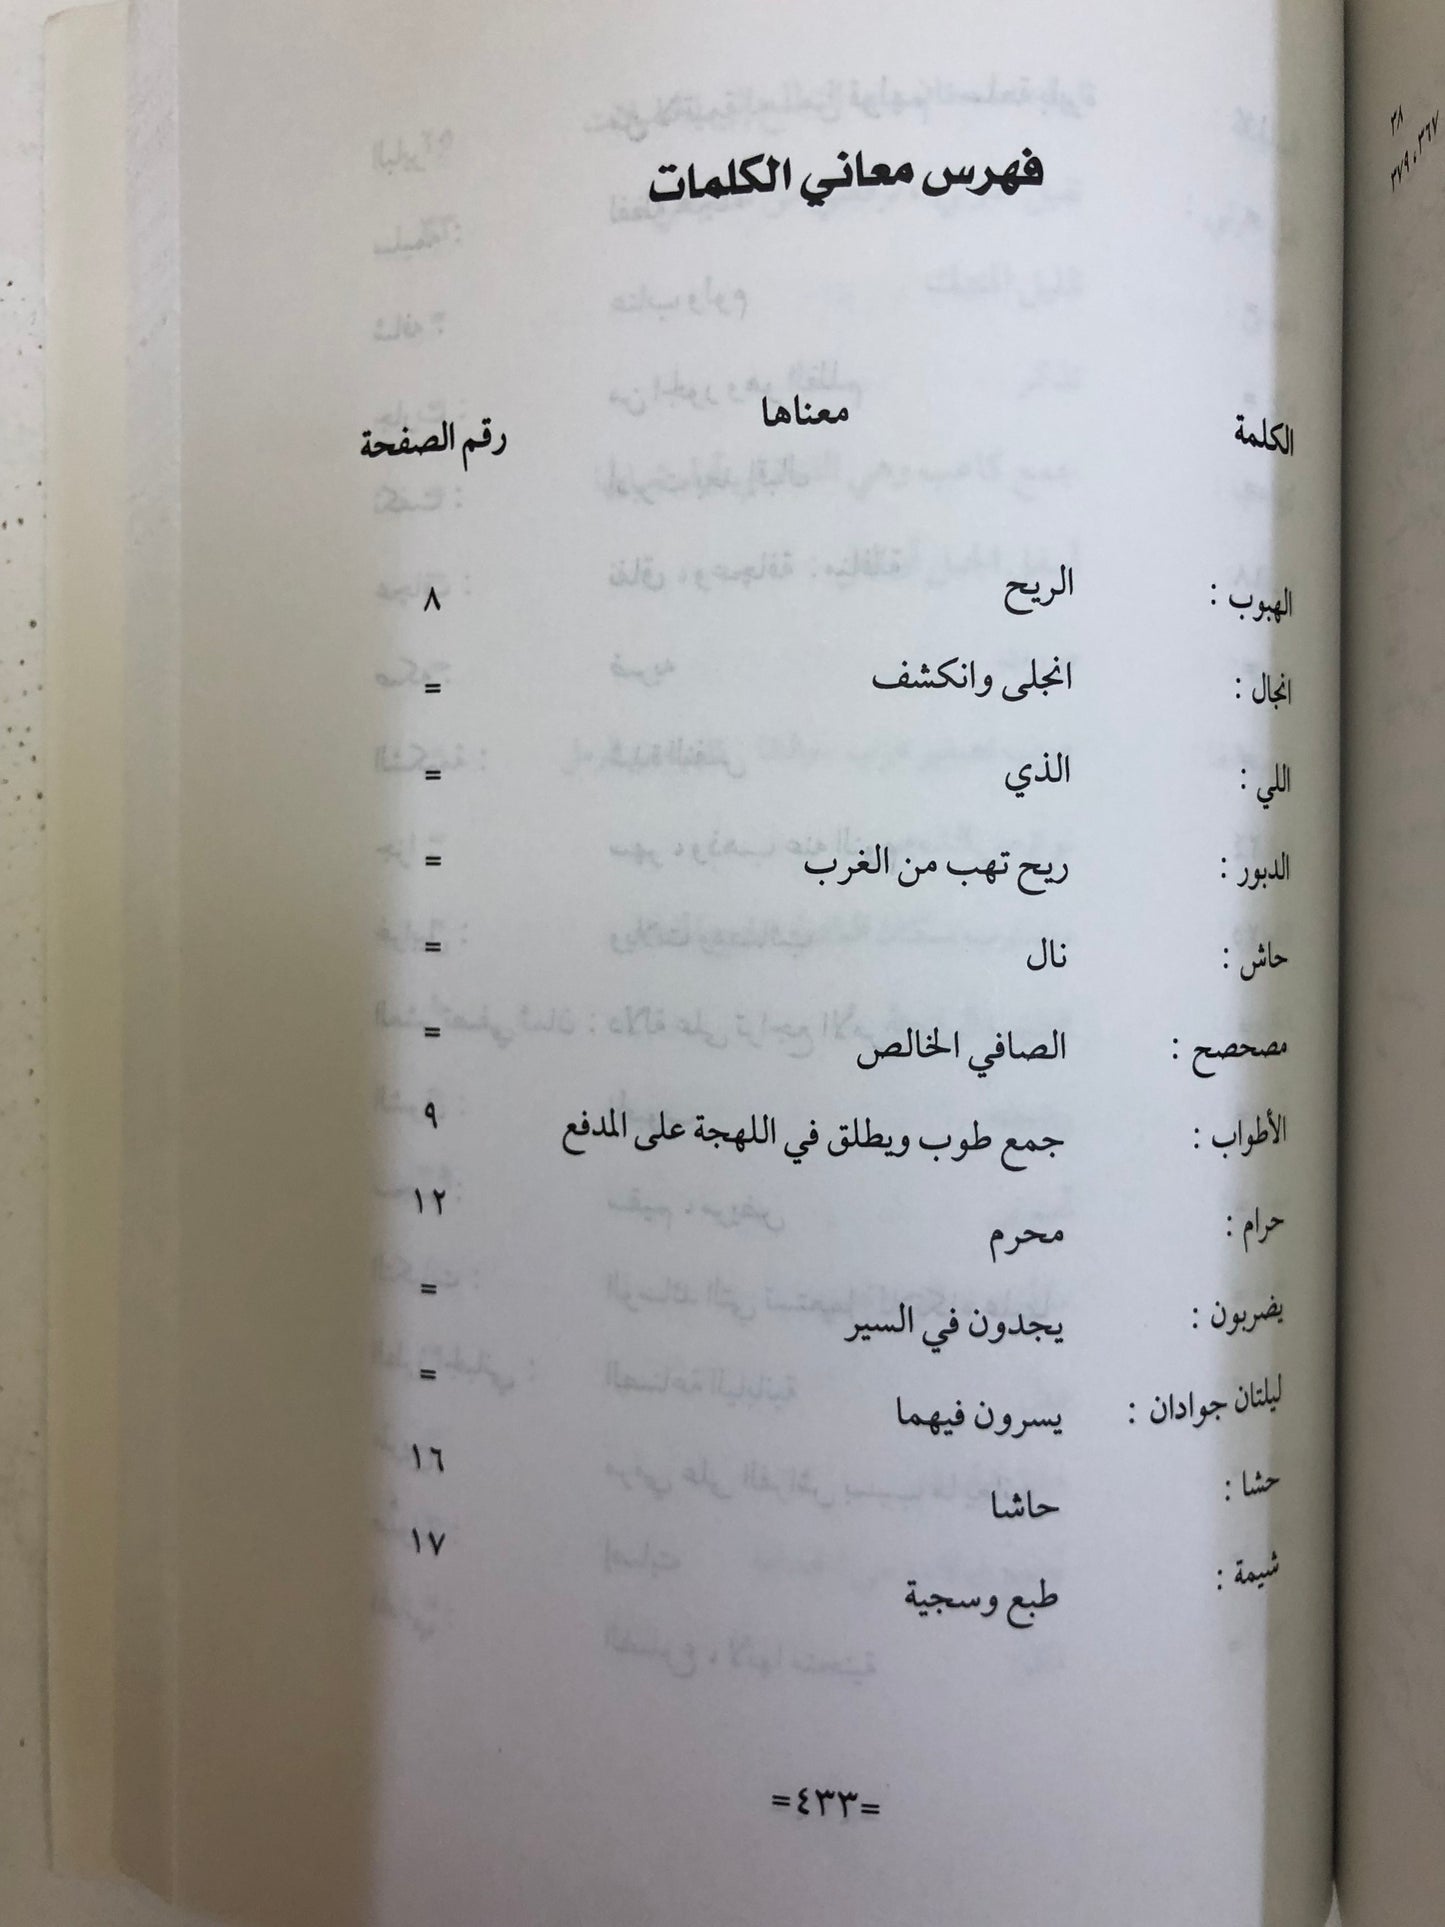 فهرس معاني الكلمات
الكلمة معناها رقم الصفحة
الهبوب : الريح ٨
انجال : انجلى وانكشف =
اللي : الذي =
الدبور : ريح تهب من الغرب =
حاش : نال =
مصحصح : الصافي الخالص =
الأطواب : جمع طوب ويطلق في اللهجة على المدفع ٩
حرام : محرم ١٢
يضربون : يجدون في السير =
ليلتان جوادان : يسرون فيهما =
حشا : حاشا ١٦
شيمة : طبع وسجية ١٧
=٤٣٣=
٣٨
٣٧٩ ، ٣٦٧